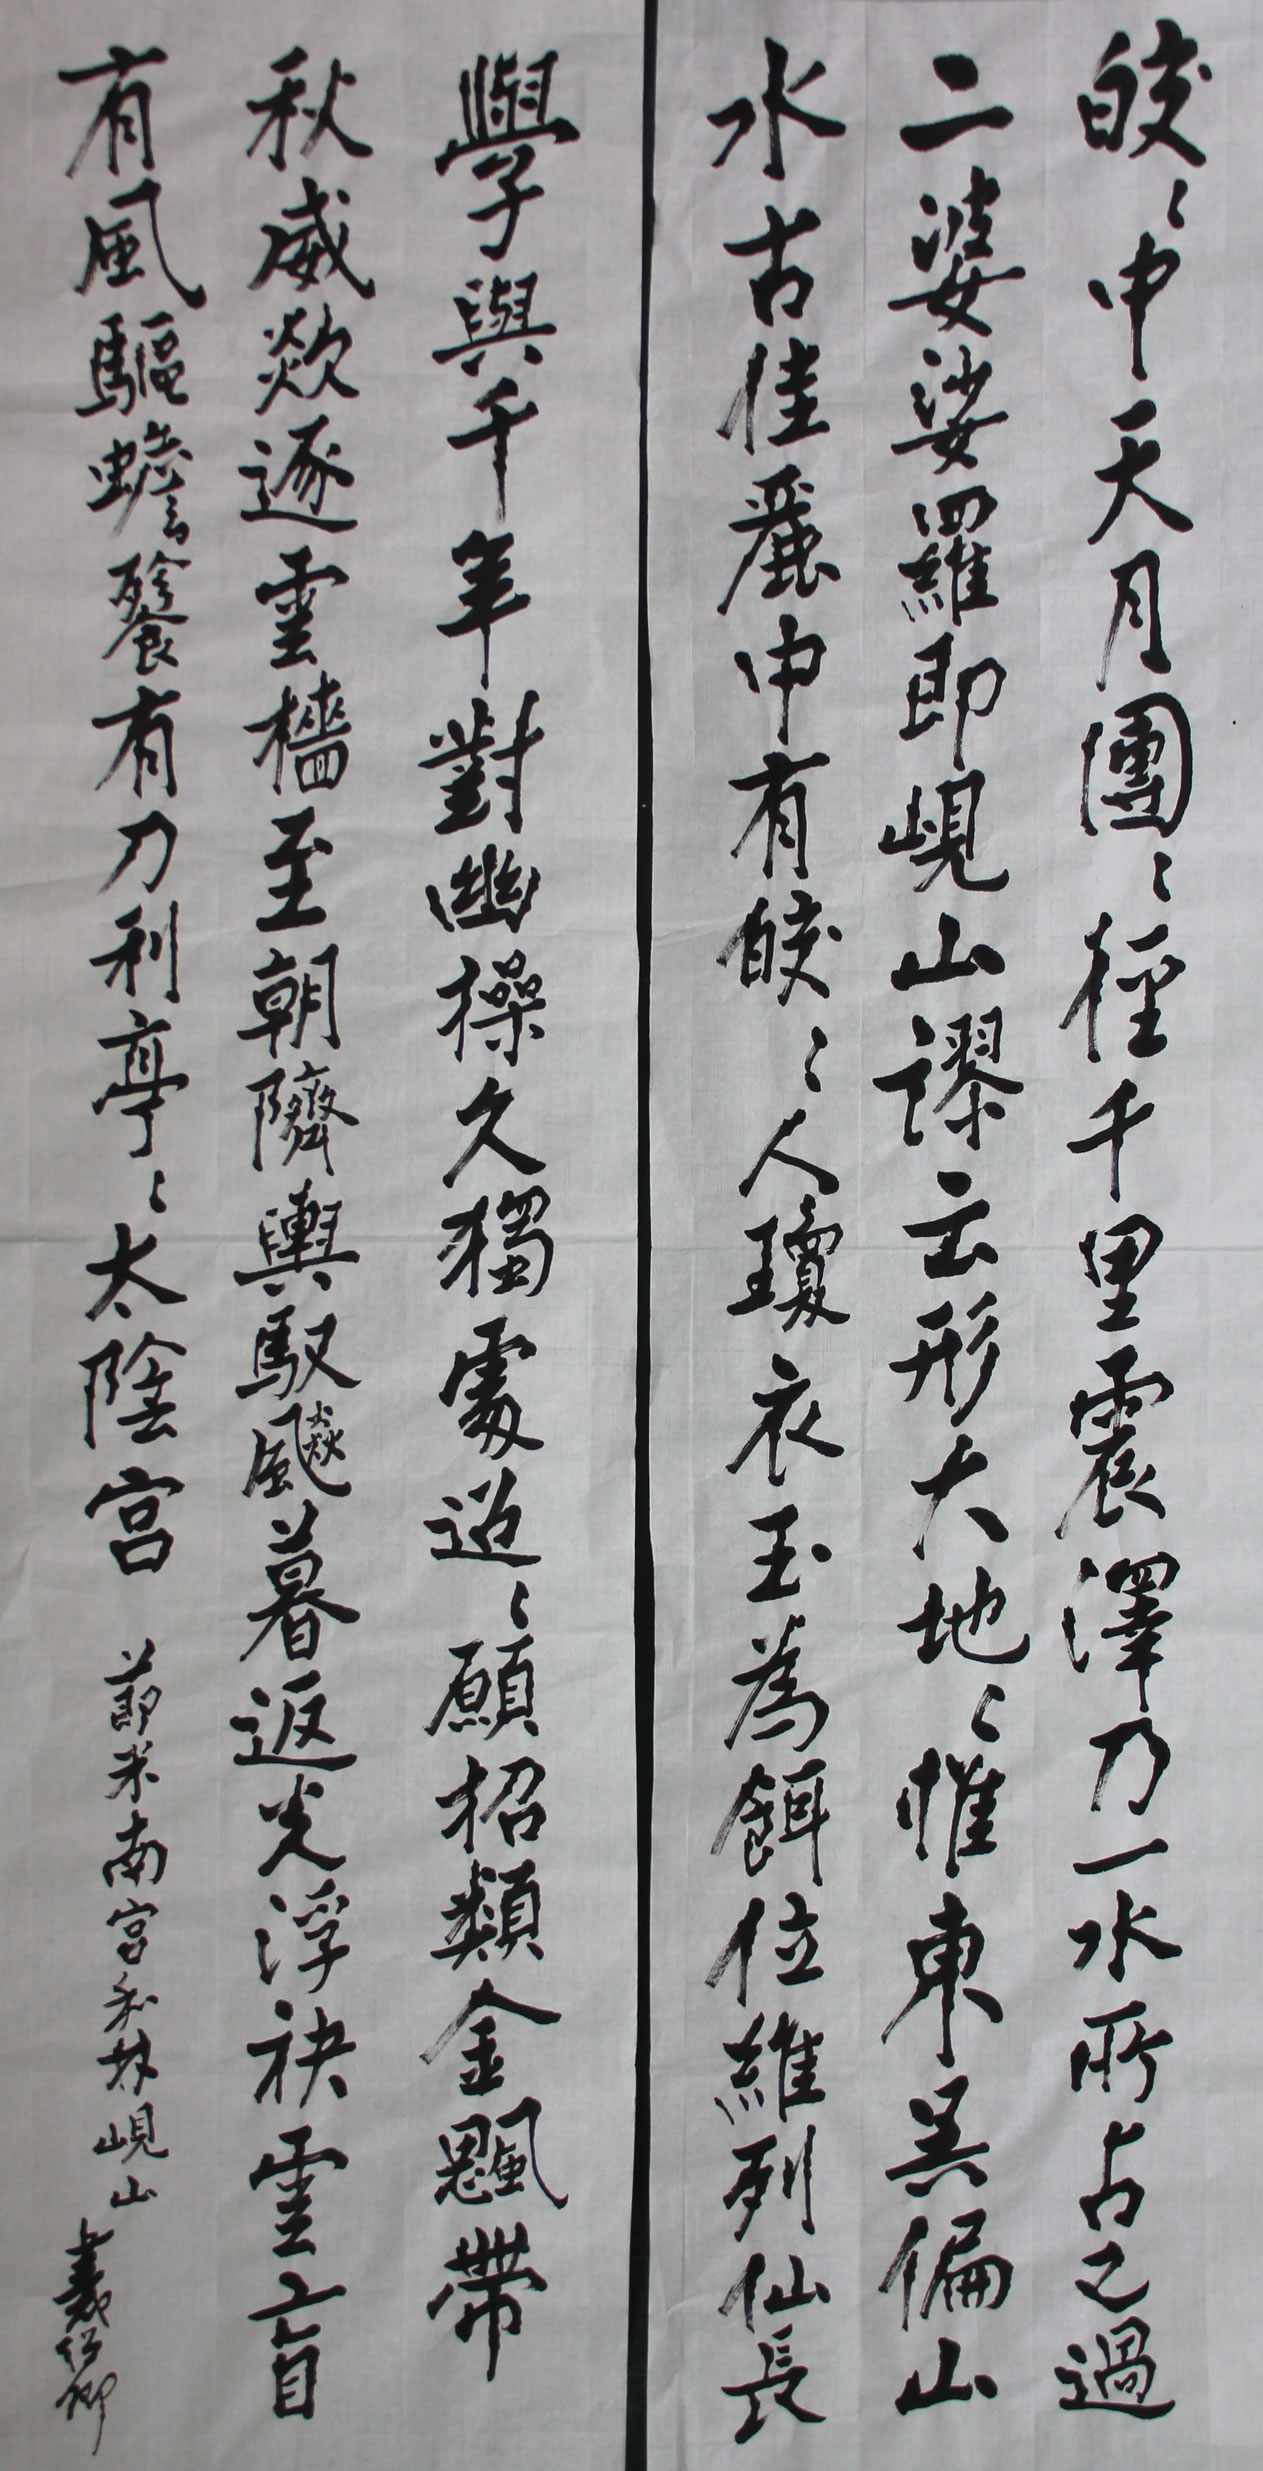 皎々中天月團々徑千里震澤乃一水所占已過
二婆娑羅即峴山謬云形大地々惟東吳偏山
水古佳麗中有皎々人瓊衣玉為餌位維列仙長
學與千年對幽操久獨處迢々願招類金飔帶
秋威欻逐雲檣至朝隮輿馭飆暮返光浮袂雲盲
有風驅蟾餮有刀利亭々太陰宮
節米南宮和林峴山